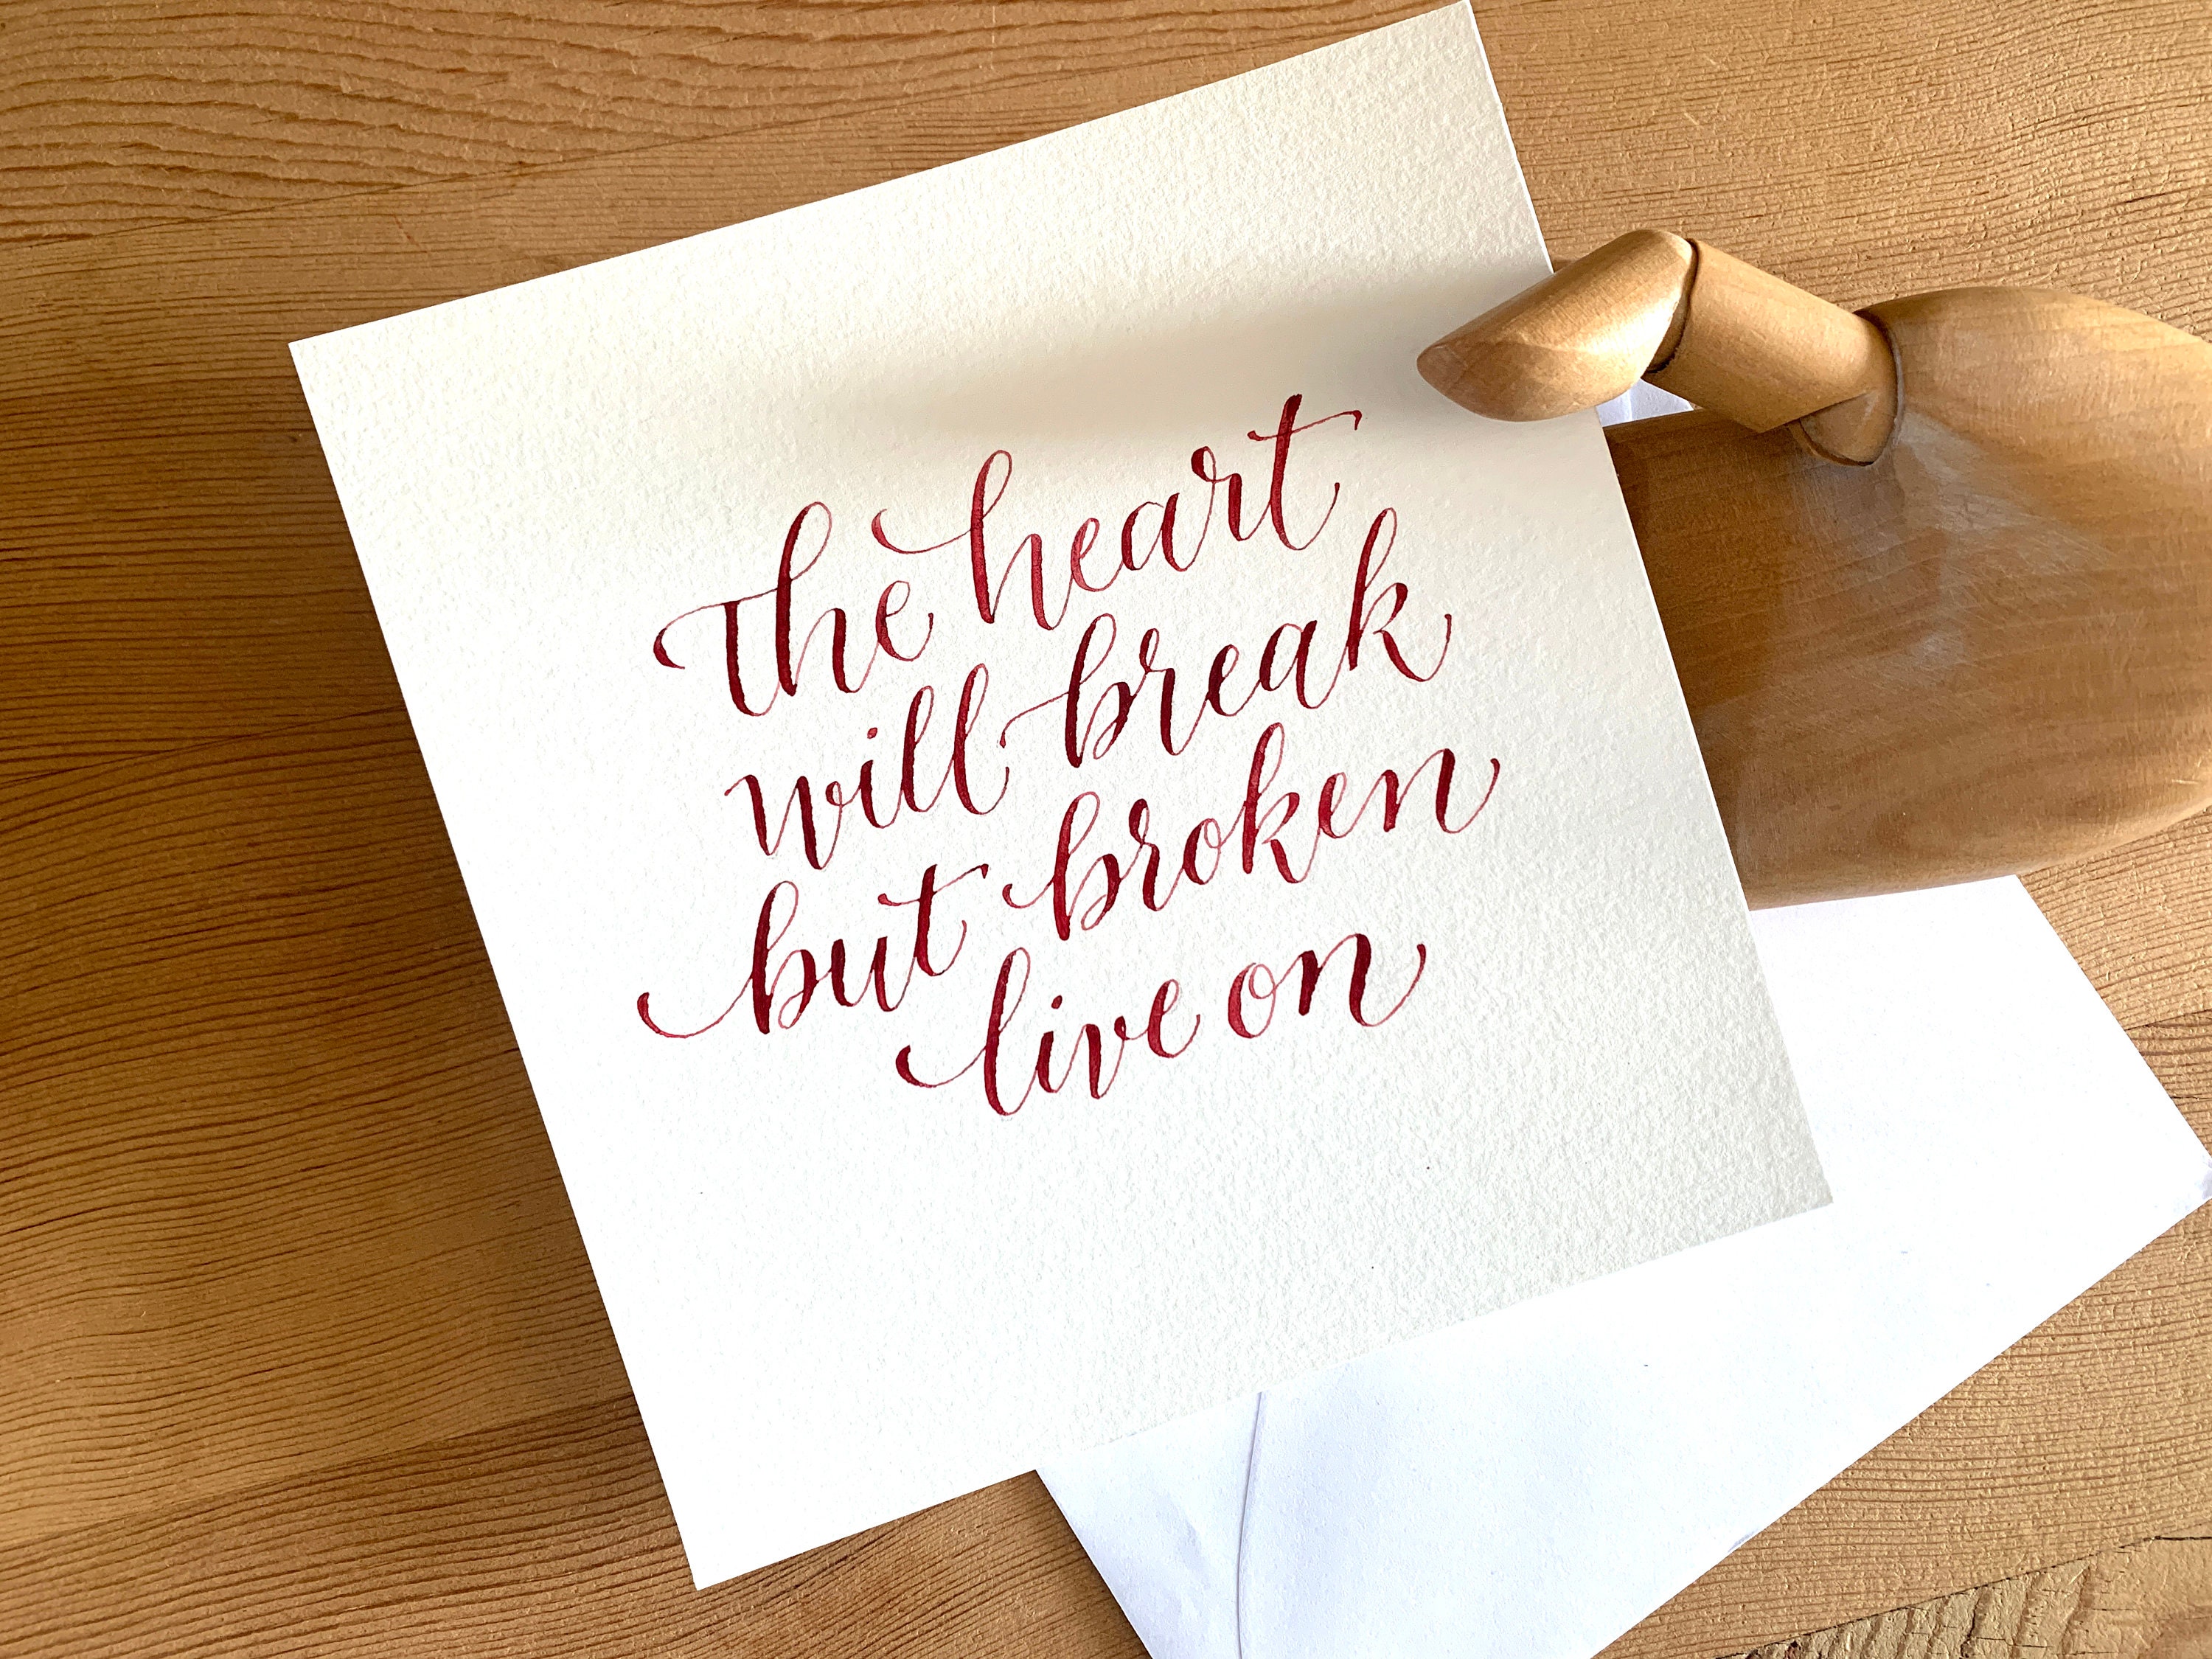 the heart
will break
but broken
live on